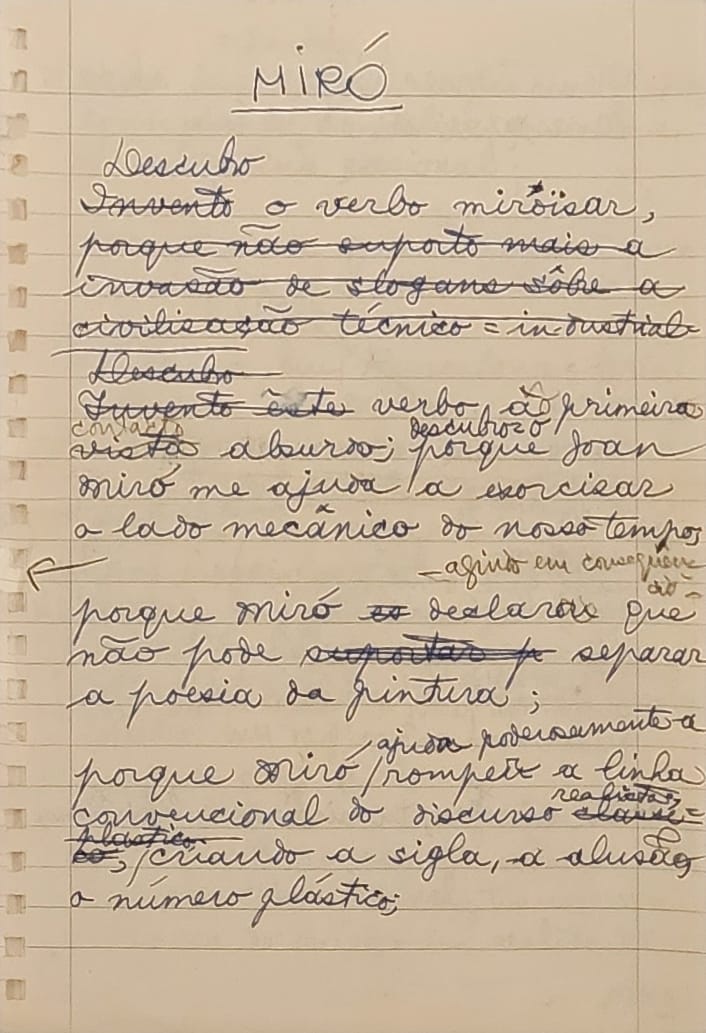 MIRÓ
Descubro
Invento o verbo miroïsar,
porque não suporto mais a
invasão de slogans sôbre a
civilisação técnico=industrial
Descubro
Invento êste verbo à primeira
contacto
descubro-o
vista absurdo; porque Joan
Miró me ajuda a exorcisar
o lado mecânico do nosso tempo;
agindo em consequên
cia
porque Miró declarou que
não pode suportar separar
a poesia da pintura;
ajuda poderosamente a
porque Miró romper a linha
convencional do discurso classi=
realista;
plastico
co; criando a sigla, a alusão,
o número plástico;